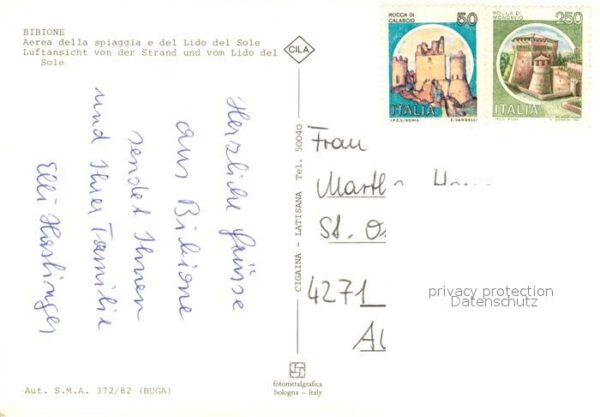 BIBIONE
Aerea della spiaggia e del Lido del Sole
Luftansicht von der Strand und vom Lido del
Sole
Herzliche Grüsse
aus Bibione
sendet Ihnen
und Ihrer Familie
Elli Haslinger
Aut. S.M.A. 372/82 (BUGA)
CILA
CIGAINA - LATISANA Tel. 50040
fotometalgrafica
bologna - Italy
ROCCA DI
CALASCIO
50
ITALIA
I.P.Z.S.-ROMA E. VANGELLI
ROCCA DI
MONDAVIO
250
ITALIA
Frau
Marth
St. O
4271
A
privacy protection
Datenschutz